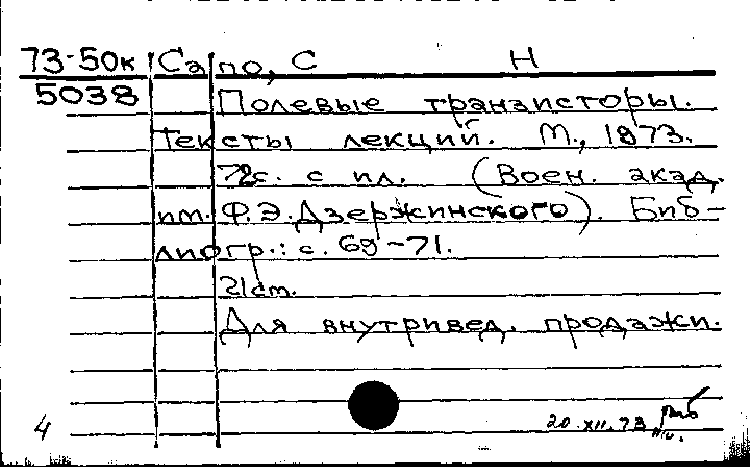 73-50к Сапо, С Н
5038 Полевые транзисторы.
Тексты лекций. М., 1973.
72с. с ил. (Воен. акад.
им. Ф.Э.Дзержинского). Биб-
лиогр.: с. 69-71.
21cm.
Для внутривед. продажи.
4 20.XII.73